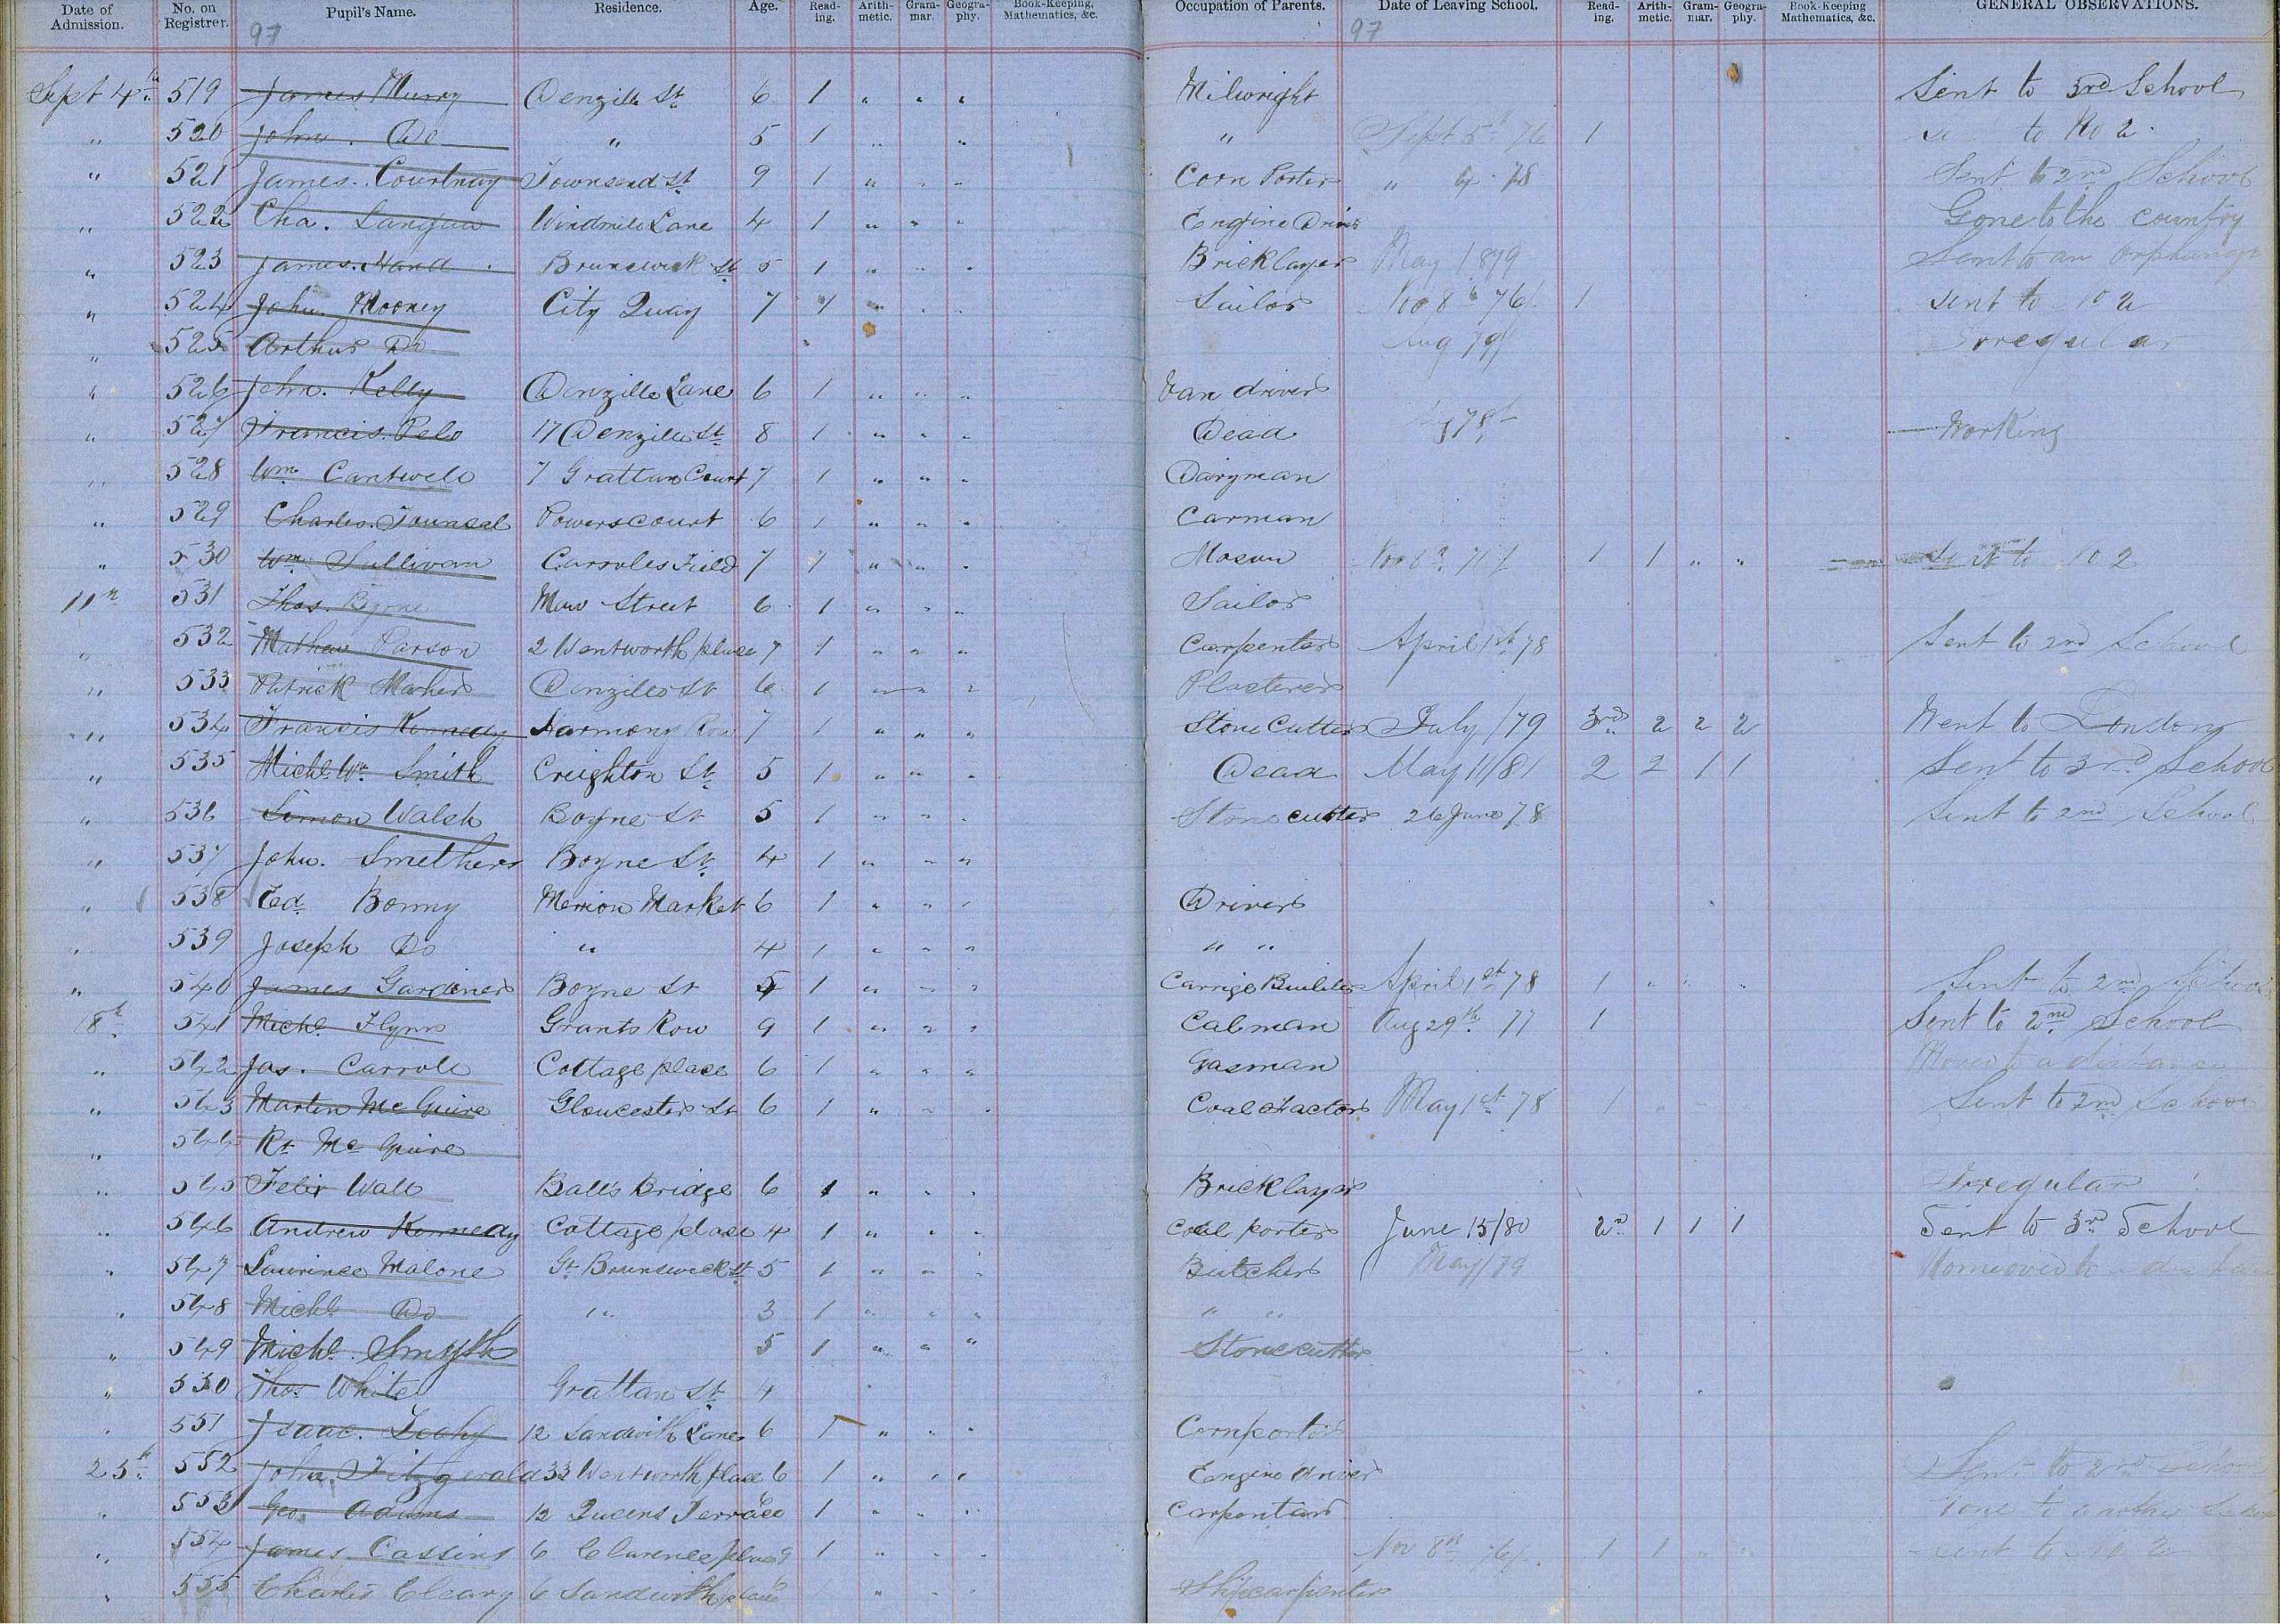 Date of Admission. No. on Registrer. Pupil's Name. Residence. Age. Reading. Arithmetic. Grammar. Geography. Book-Keeping, Mathematics, &c. Occupation of Parents. Date of Leaving School. Reading. Arithmetic. Grammar. Geography. Book-Keeping Mathematics, &c. GENERAL OBSERVATIONS.
97 97
Sept 4th 519 James Murry Denzille St 6 1 " " " Milwright Sent to 3rd School
" 520 John. Do " 5 1 " " " Sept 5th 76 1 to No 2.
" 521 James. Courtnay Townsend St 9 1 " " " Corn Porter " 4. 78 Sent to 2nd School
" 522 Cha. Windmill Lane 4 1 " " " Engine Driver Gone to the country
" 523 James. Hand Brunswick St 5 1 " " " Bricklayer May 1879 Sent to an orphanage
" 524 John. Mooney City Quay 7 1 " " " Sailor Nov 8th 76 1 sent to 2
" 525 Arthur Do Aug 79 Irregular
" 526 John. Kelly Denzille Lane 6 1 " " " Van driver
" 527 Francis. 17 Denzille St 8 1 " " " Dead 78 Working
" 528 Wm Cantwell 7 Grattan Court 7 1 " " " Dairyman
" 529 Charles. Powerscourt 6 1 " " " Carman
" 530 Wm Sullivan Carrolls Field 7 1 " " " Mason Nov 8th 1 1 " " 2
11th 531 Thos. Byrne Street 6 1 " " " Sailor
" 532 Mathew Parson 2 Wentworth place 7 1 " " " Carpenter April 1st 78 Sent to 2nd School
" 533 Patrick Maher Denzille St 6 1 " " " Plasterer
" 534 Francis Kennedy Harmony Row 7 1 " " " Stone Cutter July /79 3rd 2 2 2 Went to London
" 535 Michl. Wm Smith Creighton St 5 1 " " " Dead May 11/81 2 2 1 1 Sent to 3rd School
" 536 Simon Walsh Boyne St 5 1 " " " Stone cutter 26 June 78 Sent to 2nd School
" 537 John. Smethers Boyne St. 4 1 " " "
" 538 Ed. Bonny Merrion Market 6 1 " " " Driver
" 539 Joseph Do " 4 1 " " " " "
" 540 James Gardiner Boyne St 5 1 " " " Carrige Builder April 1st 78 1 " " " Sent to 2nd School
18th 541 Michl. Flynn Grants Row 9 1 " " " Cabman Aug 29th. 77 1 Sent to 2nd School
" 542 Jas. Carroll Cottage place 6 1 " " " Gasman Moved to a distance
" 543 Martin Mc Guire Gloucester St 6 1 " " " Coal Factor May 1st 78 1 Sent to 2nd School
" 544 Rt Mc Guire
" 545 Felix Wall Balls Bridge 6 1 " " " Bricklayer Irregular
" 546 Andrew Kennedy Cottage place 4 1 " " " Coal porter June 15/80 2nd 1 1 1 Sent to 3rd School
" 547 Laurince Malone Gt Brunswick St 5 1 " " " Butcher May/79
" 548 Michl. Do " 3 1 " " " " "
" 549 Michl. Smyth 5 1 " " " Stonecutter
" 550 Thos. White Grattan St. 4
" 551 Isaac. Leahy 12 Sandwith Lane 6 1 " " " Cornporter
25th. 552 John. Fitzgerald 33 Wentworth place 6 1 " " " Engine driver Sent to 2nd School
" 553 Geo. Adams 12 Queens Terrace 6 1 " " " Carpenter Gone to another School
" 554 James Cassins 6 Clarence place 9 1 " " " Nov 8th 76/. 1 1 " " sent to No 2
" 555 Charles Cleary 6 Sandwith place " " " Shipcarpenter